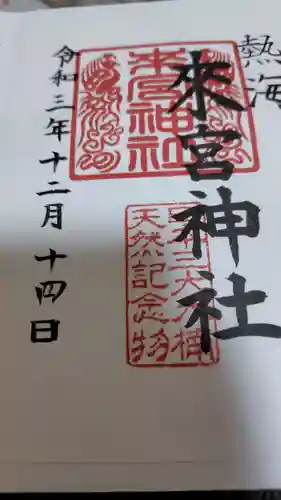 熱海
來宮神社
來宮神社
天然記念物
令和三年十二月十四日